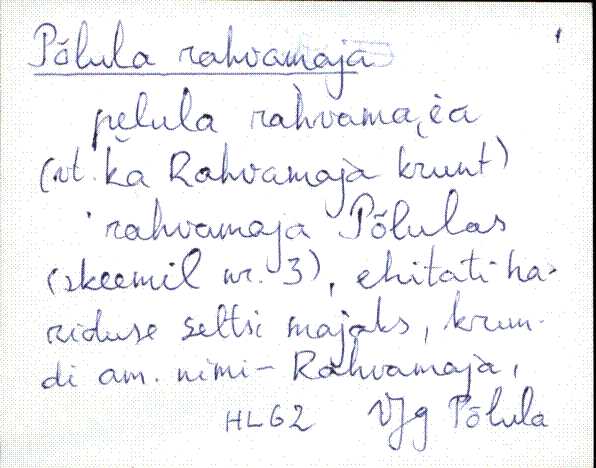 Põlula rahvamaja
pe̮lula rahvamai̯a
(vt. ka Rahvamaja krunt)
rahvamaja Põlulas
(skeemil nr. 3), ehitati ha-
riduse seltsi majaks, krun-
di am. nimi - Rahvamaja,
HL62 VJg Põlula